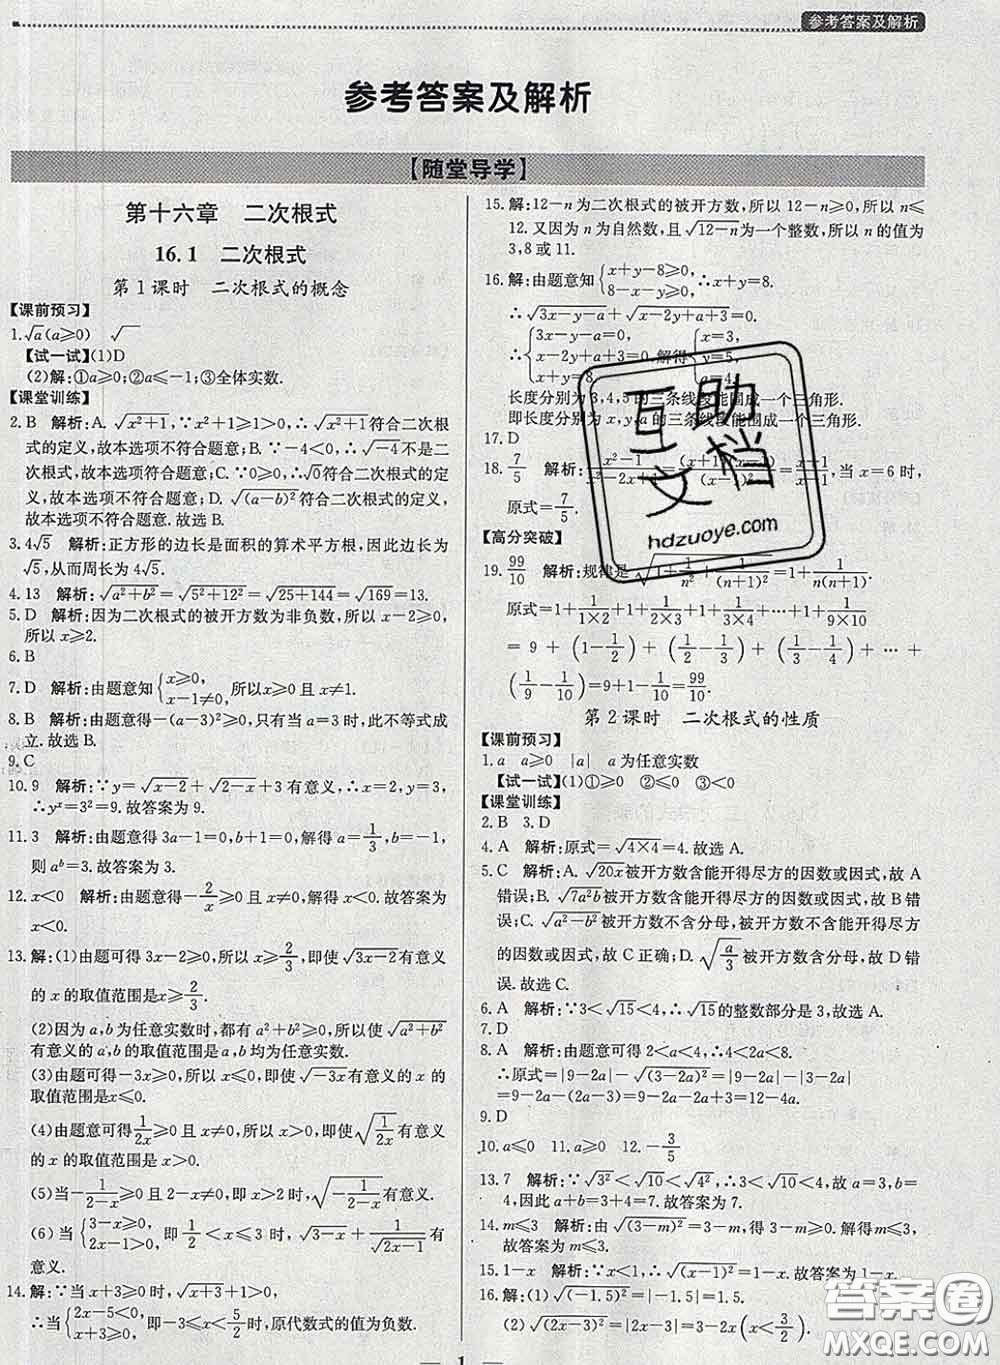 参考答案及解析
参考答案及解析
【随堂导学】
第十六章　二次根式
16.1　二次根式
第1课时　二次根式的概念
【课前预习】
1.√a(a≥0)　√
【试一试】(1)D
(2)解:①a≥0;②a≤-1;③全体实数.
【课堂训练】
2. B　解析:A. √(x²+1),∵x²+1≥1>0,∴√(x²+1)符合二次根
式的定义,故本选项不符合题意;B. ∵-4<0,∴√-4不是二
次根式,故本选项符合题意;C. ∵0≥0,∴√0符合二次根式的定义,
故本选项不符合题意;D. √(a-b)²符合二次根式的定义,
故本选项不符合题意.故选B.
3. 4√5　解析:正方形的边长是面积的算术平方根,因此边长为
√5,从而周长为4√5.
4. 13　解析:√(a²+b²)=√(5²+12²)=√(25+144)=√169=13.
5. D　解析:因为二次根式的被开方数为非负数,所以x-2≥0,
所以x≥2.
6. B
7. D　解析:由题意知{x≥0, x-1≠0, 所以x≥0且x≠1.
8. B　解析:由题意得-(a-3)²≥0,只有当a=3时,此不等式成
立.故选B.
9. C
10. 9　解析:∵y=√(x-2)+√(2-x)+3有意义,∴x=2,y=3,
∴yˣ=3²=9.故答案为9.
11. 3　解析:由题意得3a-1=0,b+1=0,解得a=1/3,b=-1,
则aᵇ=3.故答案为3.
12. x<0　解析:由题意得-2/x≥0且x≠0,解得x<0.故答案为
x<0.
13. 解:(1)由题意可得3x-2≥0,所以x≥2/3,即使√(3x-2)有意义
的x的取值范围是x≥2/3.
(2)因为a,b为任意实数时,都有a²+b²≥0,所以使√(a²+b²)
有意义的a,b的取值范围是a,b均为任意实数.
(3)由题意可得-3x≥0,所以x≤0,即使√-3x有意义的x的
取值范围是x≤0.
(4)由题意可得1/2x≥0且x≠0,所以x>0,即使√(1/2x)有意义
的x的取值范围是x>0.
(5)当-1/(2-x)≥0且2-x≠0,即x>2时,√(-1/(2-x))有意义.
(6)当{3-x≥0, 2x-1>0, 即1/2<x≤3时,√(3-x)+1/√(2x-1)有
意义.
14. 解:∵当x+3≥0时,√(x+3)+1>0,
∴当{2x-5<0, x+3≥0, 即-3≤x<5/2时,原代数式的值为负数.
15. 解:12-n为二次根式的被开方数,所以12-n≥0,所以n≤
12.又因为n为自然数,且√(12-n)为一个整数,所以n的值为
3,8或11.
16. 解:由题意知{x+y-8≥0, 8-x-y≥0, ∴x+y=8.
∴√(3x-y-a)+√(x-2y+a+3)=0.
∴{3x-y-a=0, x-2y+a+3=0, x+y=8. 解得{x=3, y=5, a=4.
长度分别为3,4,5的三条线段能围成一个三角形.
即长度分别为x,y,a的三条线段能围成一个三角形.
17. D
18. 7/5　解析: 当x=6时,
原式=7/5.
【高分突破】
19. 99/10　解析:规律是√(1+1/n²+1/(n+1)²)=1+1/n(n+1).
原式=1+1/(1×2)+1+1/(2×3)+1+1/(3×4)+⋯+1+1/(9×10)
=9+(1-1/2)+(1/2-1/3)+(1/3-1/4)+⋯+
(1/9-1/10)=9+1-1/10=99/10.
第2课时　二次根式的性质
【课前预习】
1. a　a≥0　|a|　a为任意实数
【试一试】(1)①≥0　②≤0　③<0
【课堂训练】
2. B　3. D
4. A　解析:原式=√(4×4)=4.故选A.
5. C　解析:A. √20x被开方数含能开得尽方的因数或因式,故A
错误;B. √7a²b被开方数含能开得尽方的因数或因式,故B错
误;C. √(a²-b²)被开方数不含分母,被开方数不含能开得尽方
的因数或因式,故C正确;D. √(a/3)被开方数含分母,故D错
误.故选C.
6. A　解析:∵3<√15<4,∴√15的整数部分是3,故选A.
7. D
8. A　解析:由题意可得2<a<4,∴4<2a<8.
∴原式=|9-2a|-√(3-2a)²=|9-2a|-|3-2a|
=9-2a-(2a-3)=9-2a-2a+3=12-4a.
9. D
10. a≤0　11. a≥0　12. -3/5
13. 7　解析:∵√3²<√10<√4²,∴3<√10<4,∴a=3,b=
4,因此a+b=3+4=7.故答案为7.
14. m≤3　解析:由√(3-m)²=3-m,得3-m≥0.解得m≤3,
故答案为m≤3.
15. 1-x　解析:∵x<1,∴√(x-1)²=1-x.故答案为1-x.
16. 解:(1)√(-1.5)²=|-1.5|=1.5.
(2)√(2x-3)²=|2x-3|=3-2x(x<3/2).
1
互助
文档
hdzuoye.com
答案圈
MXQE.COM